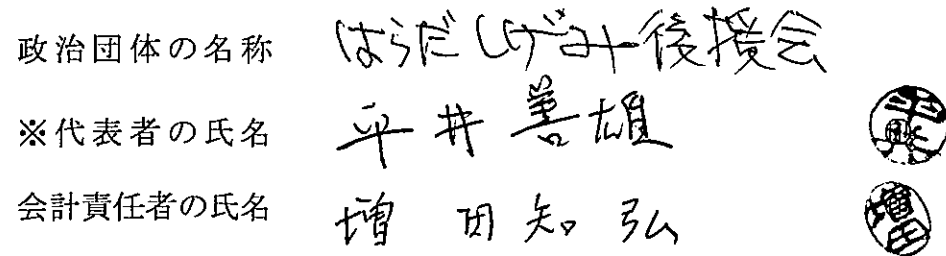 政治団体の名称 はらだしげみ後援会
※代表者の氏名 平井善雄
会計責任者の氏名 増田知弘 増田